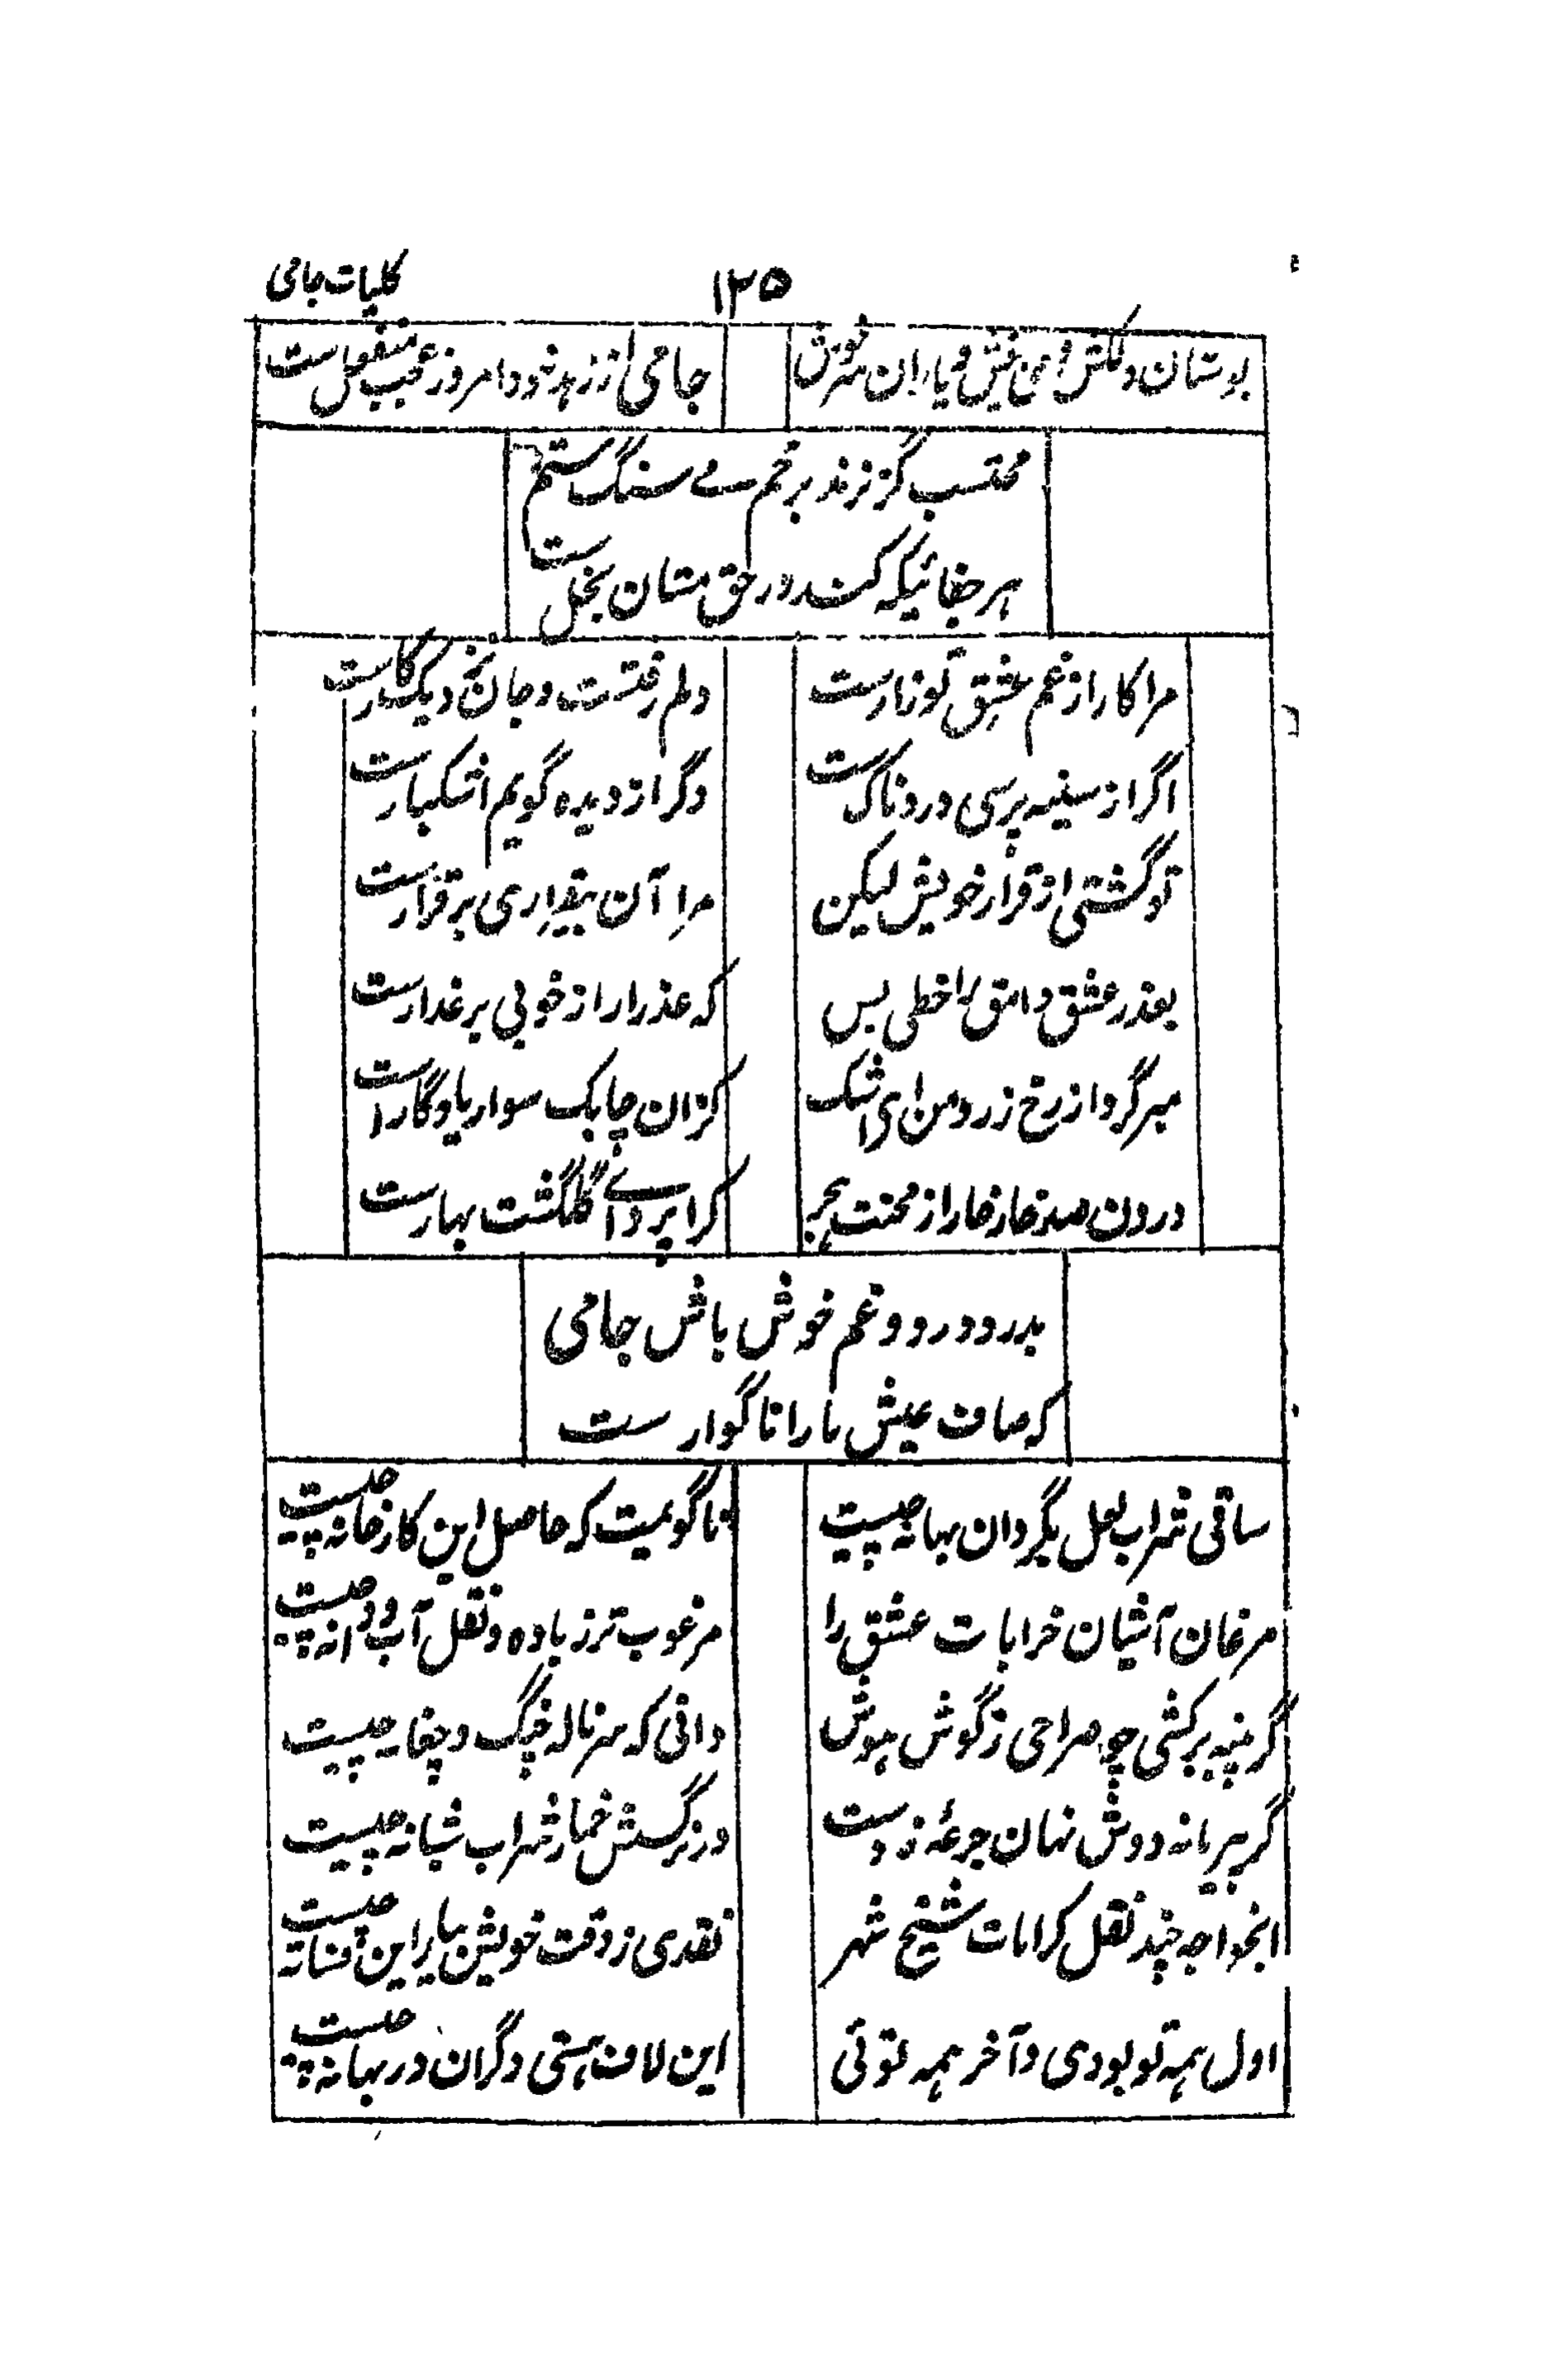 کلیات جامی
۱۲۵
بوستان دلکش و می بیغش و یاران سرخوش
جامی از زهد خود امروز عجب منفعل ست
محتسب گر زند بر خم می سنگ ستم
هر جفائیکه کند در حق مستان بحل ست
مرا کار از غم عشق تو زارست
دلم رفتست و جان نیز در کارست
اگر از سینه پرسی دردناک ست
وگر از دیده گویم اشکبارست
تو گشتی از قرار خویش لیکن
مرا آن بیقراری برقرارست
بعذر عشق وامق را خطی بس
که عذرا را ز خوبی بر عذارست
مبر گرد از رخ زرد من ای اشک
کزان چابک سوار یادگارست
درون صد خار خار از محنت هجر
کرا پروای گلگشت بهارست
بدرد و درد و غم خوش باش جامی
که صاف عیش ما را ناگوارست
ساقی شراب لعل بگردان بهانه چیست
تا گویمت که حاصل این کارخانه چیست
مرغان آشیان خرابات عشق را
مرغوب تر ز باده و نقل آب و دانه چیست
گر پنبه برکشی چو صراحی ز گوش هوش
دانی که سر ناله چنگ و چغانه چیست
گر پیر ما نه دوش نهان جرعهٔ زدست
در نرگسش خمار شراب شبانه چیست
ایخواجه چند نقل کرامات شیخ شهر
نقدی ز وقت خویش بیار این فسانه چیست
اول همه تو بودی و آخر همه توئی
این لاف هستی دگران در بهانه چیست